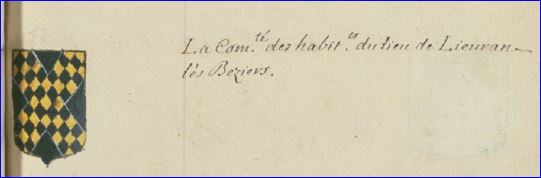 La Com.té des habit.ts du lieu de Lieuran
lès Beziers.